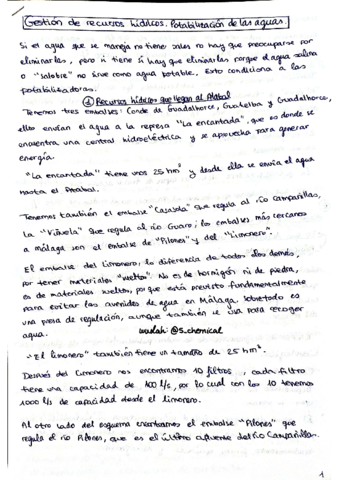 Gestión de recursos hídricos. Potabilización de las aguas.
Si el agua que se maneja no tiene sales no hay que preocuparse por
eliminarlas, pero si tiene si hay que eliminarlas porque el agua salina
o "salobre" no sirve como agua potable. Esto condiciona a las
potabilizadoras.
① Recursos hídricos que llegan al Atabal
Tenemos tres embalses: Conde de Guadalhorce, Guatelba y Guadalhorce,
ellos envían el agua a la represa "La encantada", que es donde se
encuentra una central hidroeléctrica y se aprovecha para generar
energía.
"La encantada" tiene unos 25 hm³ y desde ella se envía el agua
hasta el Atabal.
Tenemos también el embalse "Casasola" que regula al río campanillas,
la "Viñuela" que regula al río Guaro, los embalses más cercanos
a málaga son el embalse de "Pilones" y del "limonero".
El embalse del limonero, la diferencia de todos los demás,
por tener materiales "sueltos". No es de hormigón ni de piedra,
es de materiales sueltos, porque está previsto fundamentalmente
para evitar las avenidas de agua en Málaga, sobretodo es
una presa de regulación, aunque también se usa para recoger
agua. wuolah: @s_chemical
"El limonero" también tiene un tamaño de 25 hm³.
Después del limonero nos encontramos 10 filtros, cada filtro
tiene una capacidad de 100 l/s, por lo cual con los 10 tenemos
1000 l/s de capacidad desde el limonero.
Al otro lado del esquema encontramos el embalse "Pilones" que
regula el río Pilones, que es el último afluente del río Campanillas.
1